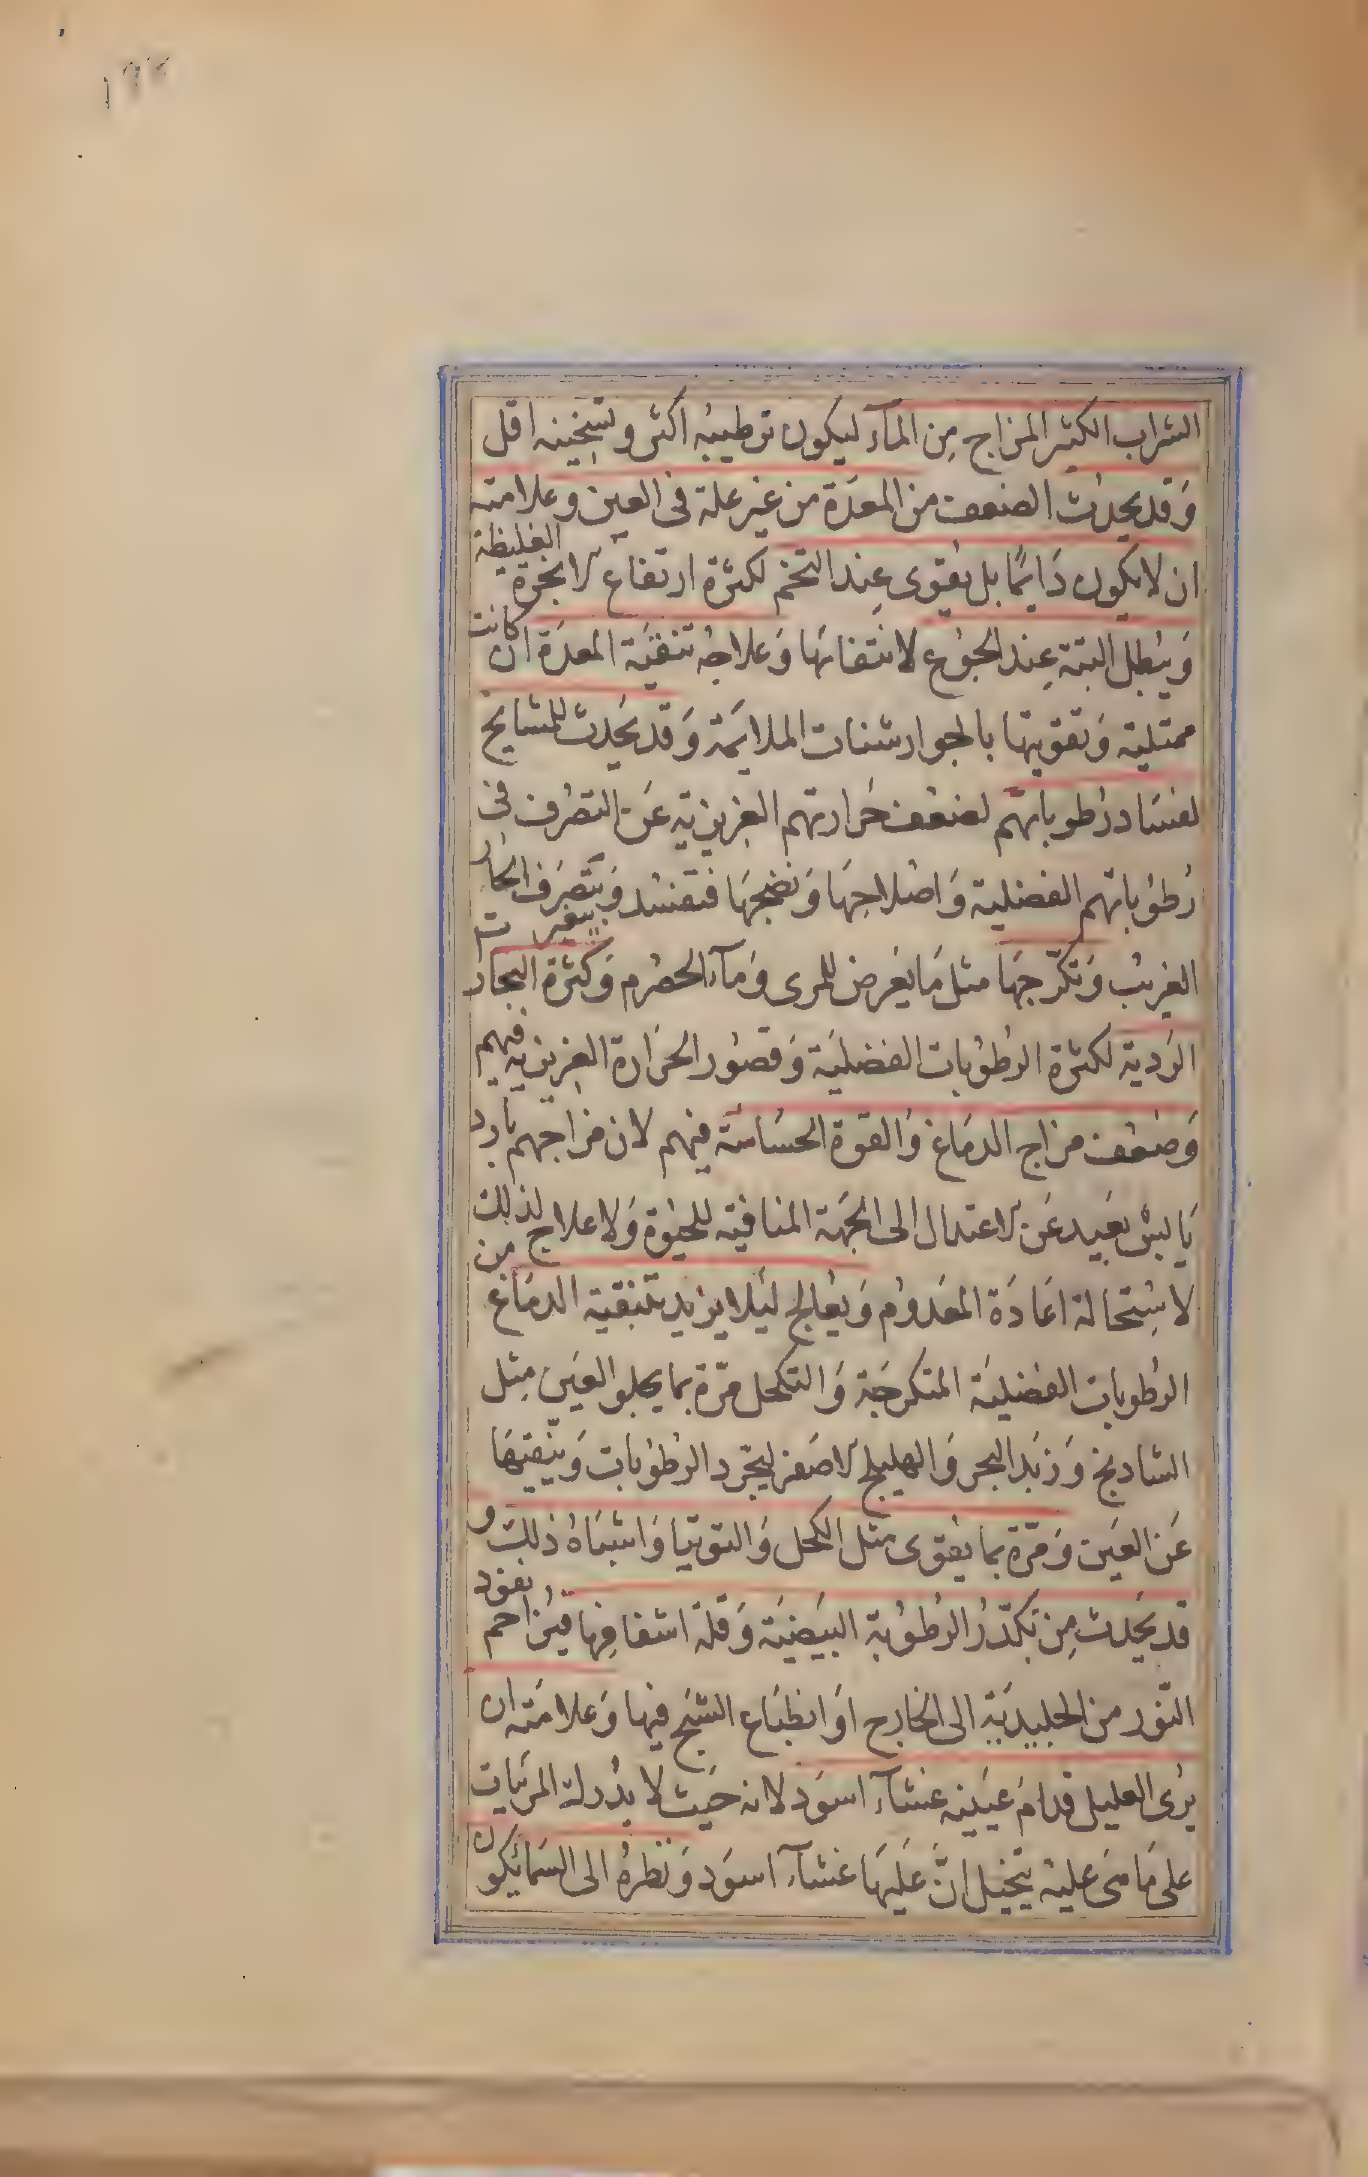 ١٩٧
الشراب الكثير المزاج من المآء ليكون ترطيبه اكثر وتسخينه اقل
وَقد يحدث الضعف من المعدَة من غير علة فى العين وعلامته
ان لا يكون دَايمًا بل يقوى عِند التخم لكثرة ارتفاع الابخرة الغليظة
وَيبطل البتة عِند الجوع لانتفائهَا وَعلاجهُ تنقيَة المعدَة ان كانت
ممتلية وَتقويتها بالجوارشنات الملايمَة وَقد يحَدث للمشايخ
لفسَاد رُطوباتهم لضعْف حَرارتهم الغريزية عَن التصَرف فى
رُطوُباتهم الفضلية وَاصْلاحِهَا وَنضجهَا فتفسُد وَيتصَرف الحَار
الغريب وَتكرّجهَا مثل مَا يعَرض للمرى وَمآء الحصْرم وَكثرَة البخار
الرَدية لكثرَة الرطوُبات الفضليَة وَقصوُر الحَرارة الغريزية فيهم
وَضعْف مزاج الدمَاغ وَالقوة الحسَاسَة فيهم لان مزاجهم بَارد
يَابسْ بعَيد عَن الاعتدال الى الجهَة المنافية للحيوٰة وَلا علاج لذلك
لاسِتحالة اعَادَة المعَدوُم وَيعَالج ليَلا يزيد بتنقية الدمَاغ من
الرطوبات الفضليَة المتكرجَة وَالتكحل مرّة بما يجلو العَين مِثل
الشادنج وَزبَد البحر وَالهليلج الاصَفر ليجَرد الرطوُبات وَينقيهَا
عَن العَين وَمرّة بما يقوى مثل الكحل وَالتوتيا وَاشبَاهُ ذلك و
قد يحَدث مِن تكدّرُ الرطوُبة البيَضيَة وَقلة اشفافِها فيُزاحم نفوذ
النّور من الجليديَة الى الخارج اوَ انطبَاع الشبَح فيها وَعلامَته ان
يرَى العليل قدامَ عيَنيه غشآء اسوَد لانه حَيث لا يدُرك المرئيات
على مَا هى عليْه يتخيل انَّ عَليَهَا غشآء اسوَد وَنظرهُ الى السَمايكون